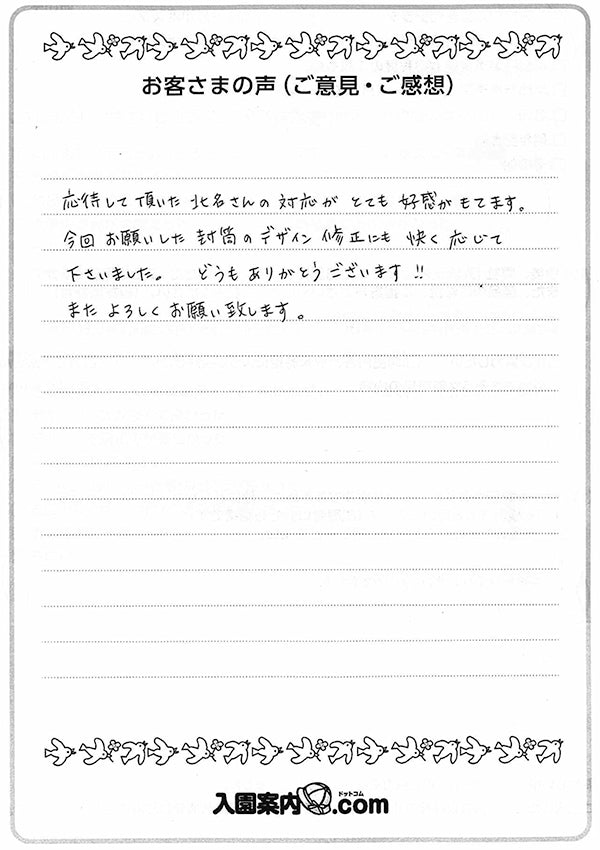 お客さまの声（ご意見・ご感想）
応待して頂いた 北名さんの 対応が とても 好感が もてます。
今回 お願いした 封筒の デザイン 修正にも 快く 応じて
下さいました。 どうも ありがとう ございます!!
また よろしく お願い致します。
ドットコム
入園案内.com